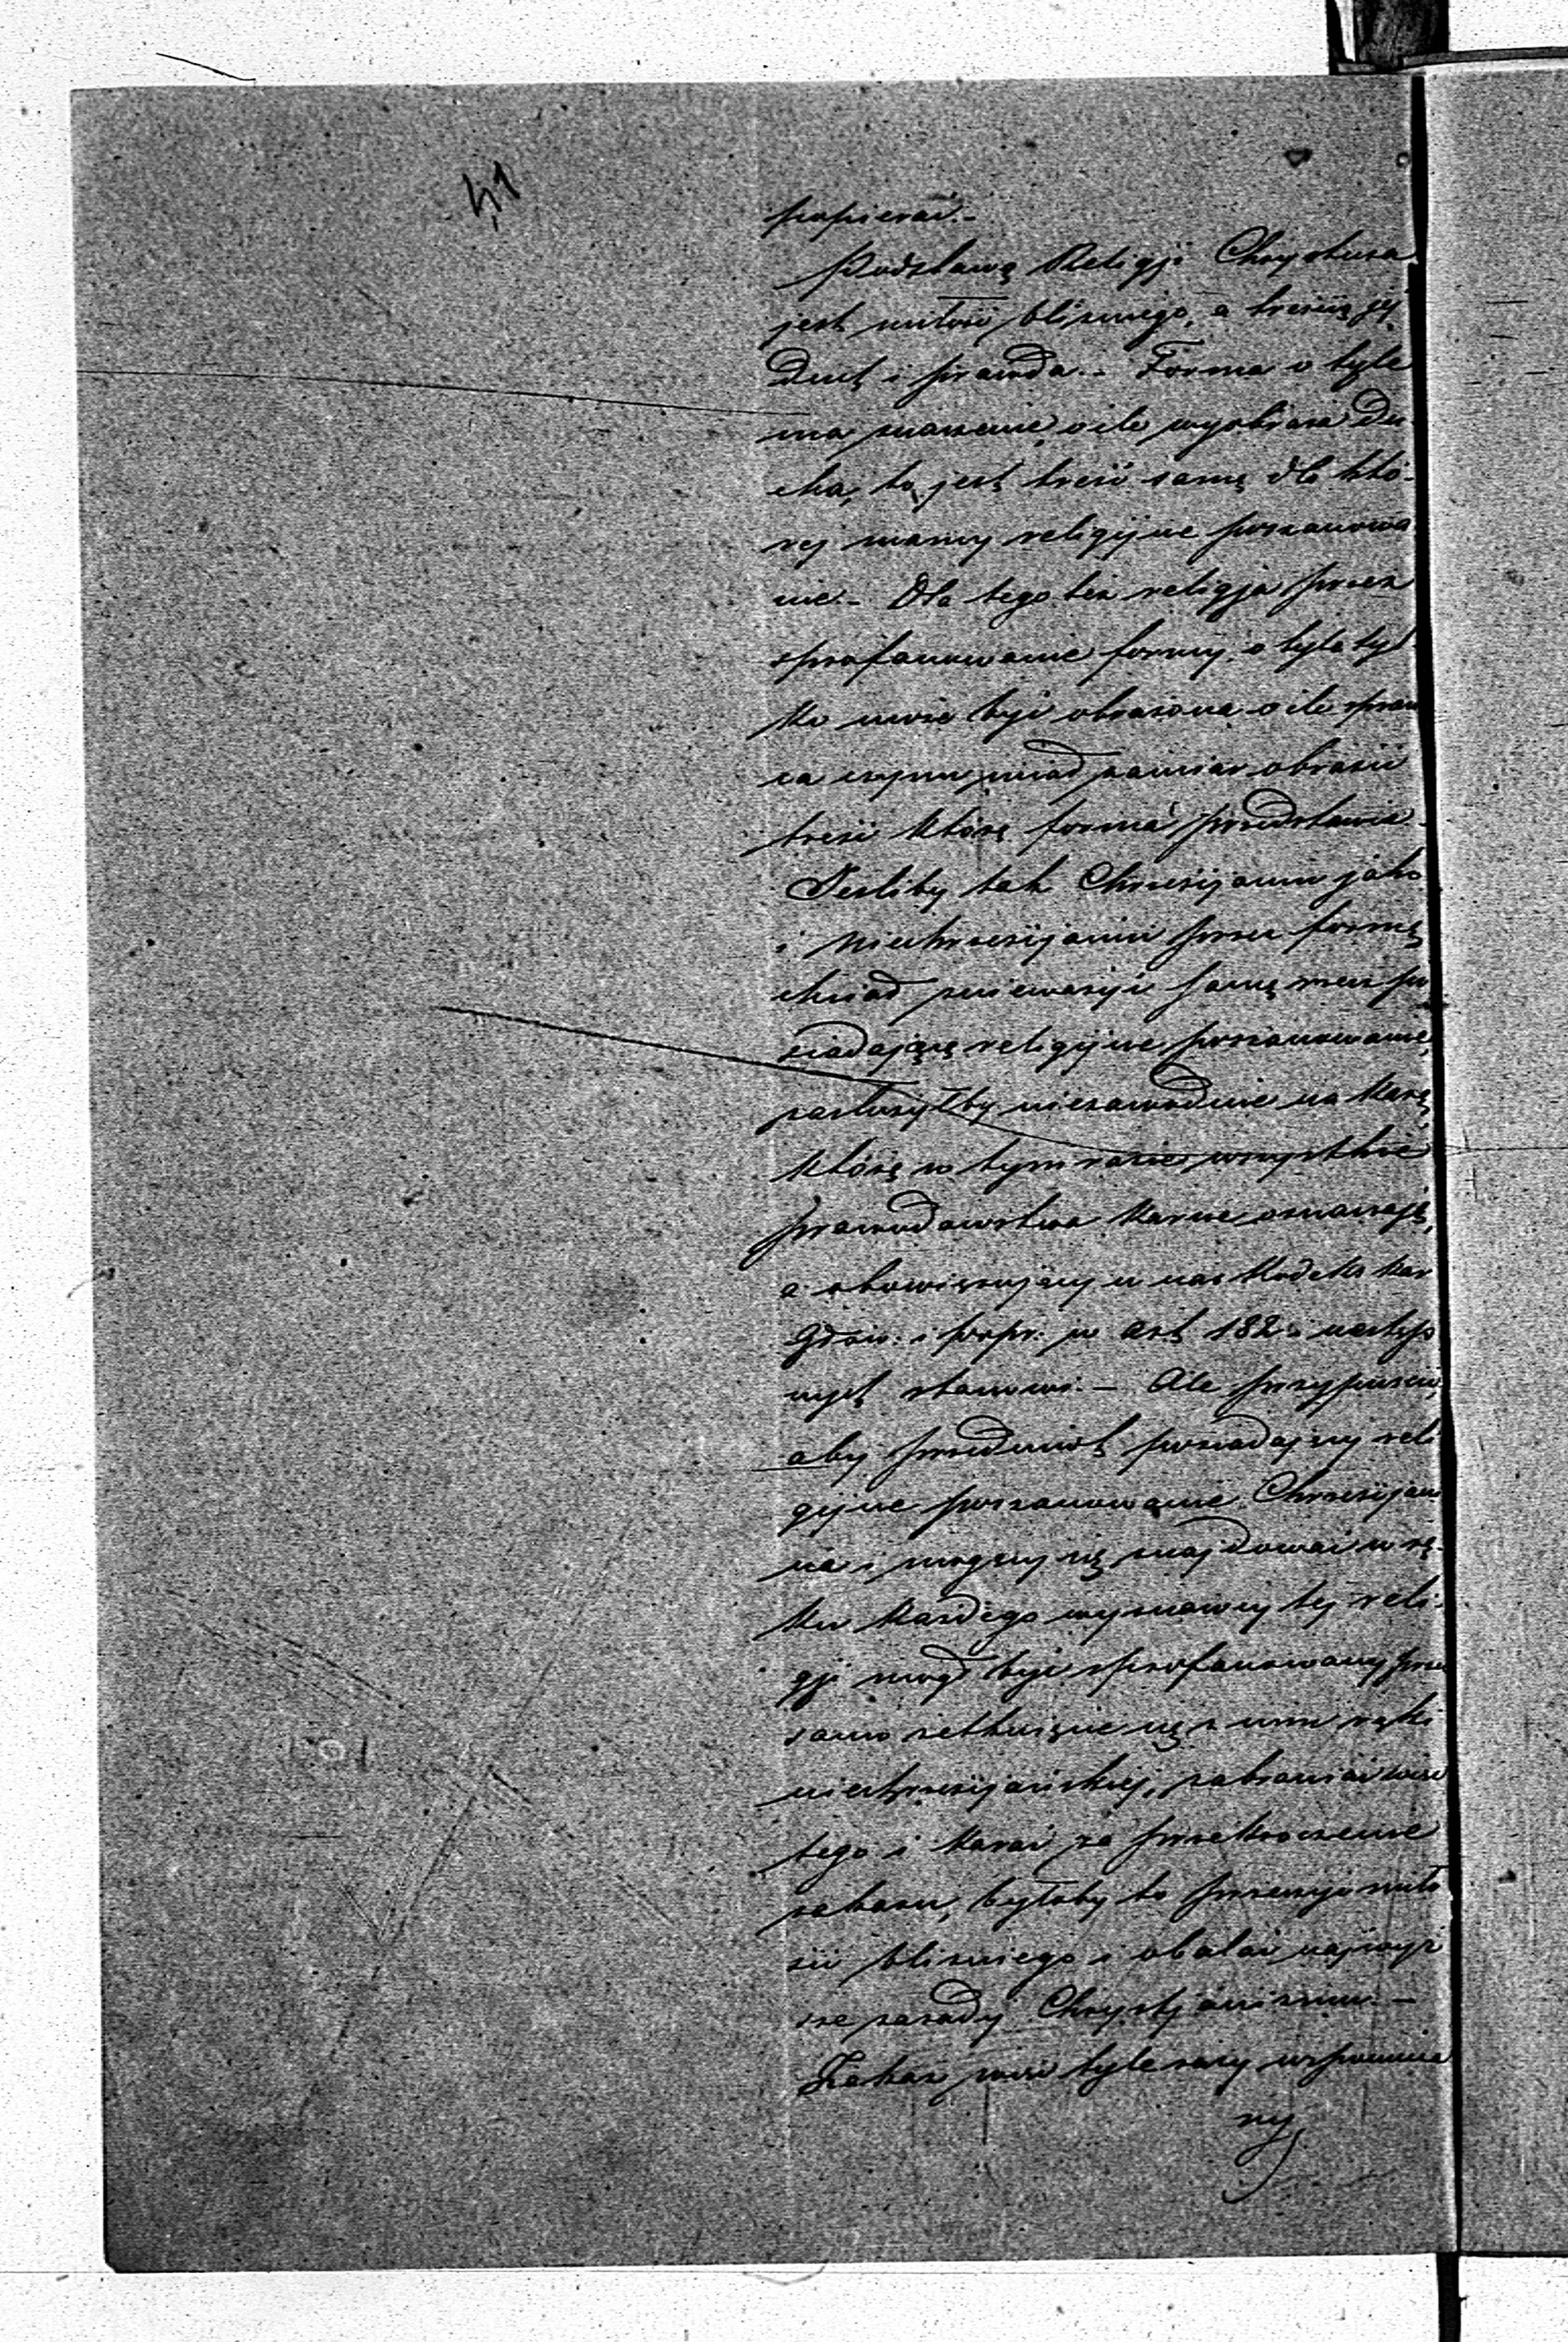 41
popierać.-
Podstawą Religji Chrystusa
jest miłość bliźniego, a treścią jej
Duch i prawda.- Forma o tyle
ma znaczenie, o ile wyobraża Du-
cha, to jest treść samą dla któ-
rej mamy religijne poszanowa-
nie.- Dla tego też religja przez
sprofanowanie formy, o tyle tyl
ko może być obrażona o ile spraw
ca czynu miał zamiar obrazić
treść którą forma przedstawia.
Jeśliby tak Chrześcijanin jako
i Niechrześcijanin przez formę
chciał znieważyć samą rzecz po
siadającą religijne poszanowanie,
zasłużyłby niezawodnie na karę
którą w tym razie wszystkie
prawodawstwa karne oznaczają,
a obowiązujący u nas Kodeks Kar
Głów: i popr: w Art 182 i następ
nych stanowi.- Ale przypuścić,
aby przedmiot posiadający reli
gijne poszanowanie Chrześcijani
na i mogący się znajdować w rę-
ku każdego wyznawcy tej reli-
gji mógł być sprofanowany przez
samo zetknięcie się z nim ręki
niechrześcijańskiej, zabraniać więc
tego i karać za przekroczenie
zakazu, byłoby to przeczyć miło
ści bliźniego i obalać najwyż
sze zasady Chrystjanizmu.-
Zakaz więc tyle razy wspomnia
ny